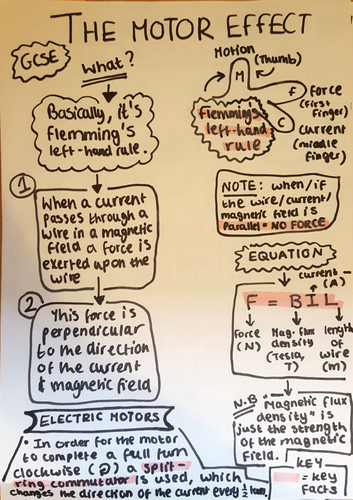 THE MOTOR EFFECT
GCSE
What?
Basically, it's
Flemming's
left-hand rule.
Motion (Thumb)
M
F
Force
(First
Finger)
C
Current
(middle
finger)
Flemming's
left-hand
rule
1
When a current
passes through a
wire in a magnetic
field a force is
exerted upon the
wire
NOTE: when/if
the wire/current/
magnetic field is
Parallel = NO FORCE
EQUATION
current
(A)
F = BIL
force
(N)
Mag. flux
density
(Tesla,
T)
length
of
wire
(m)
2
This force is
perpendicular
to the direction
of the current
& magnetic field
N.B "Magnetic flux
density" is
just the strength
of the magnetic
field.
ELECTRIC MOTORS
• In order for the motor
to complete a full turn
clockwise () a split-
ring commutator is used, which
changes the direction of the current every ½ turn.
KEY
= key
facts